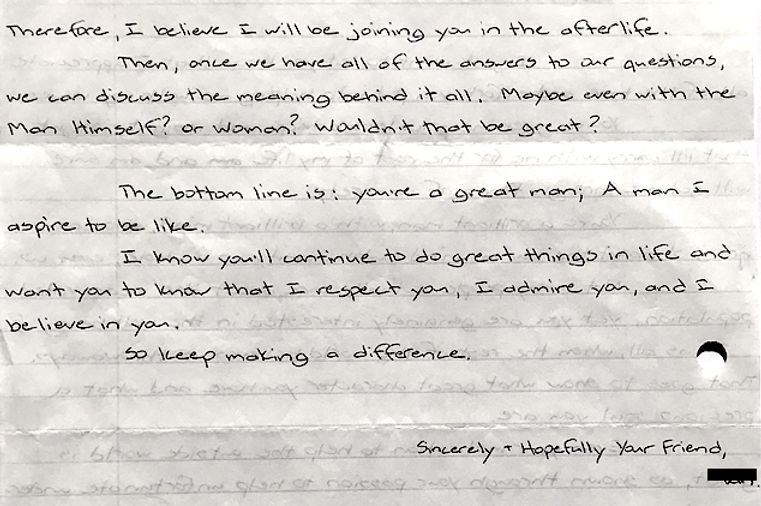 Therefore, I believe I will be joining you in the afterlife.
Then, once we have all of the answers to our questions,
we can discuss the meaning behind it all. Maybe even with the
Man Himself? or Woman? Wouldn't that be great?
The bottom line is: you're a great man; A man I
aspire to be like.
I know you'll continue to do great things in life and
want you to know that I respect you, I admire you, and I
believe in you.
So keep making a difference.
Sincerely + Hopefully Your Friend,